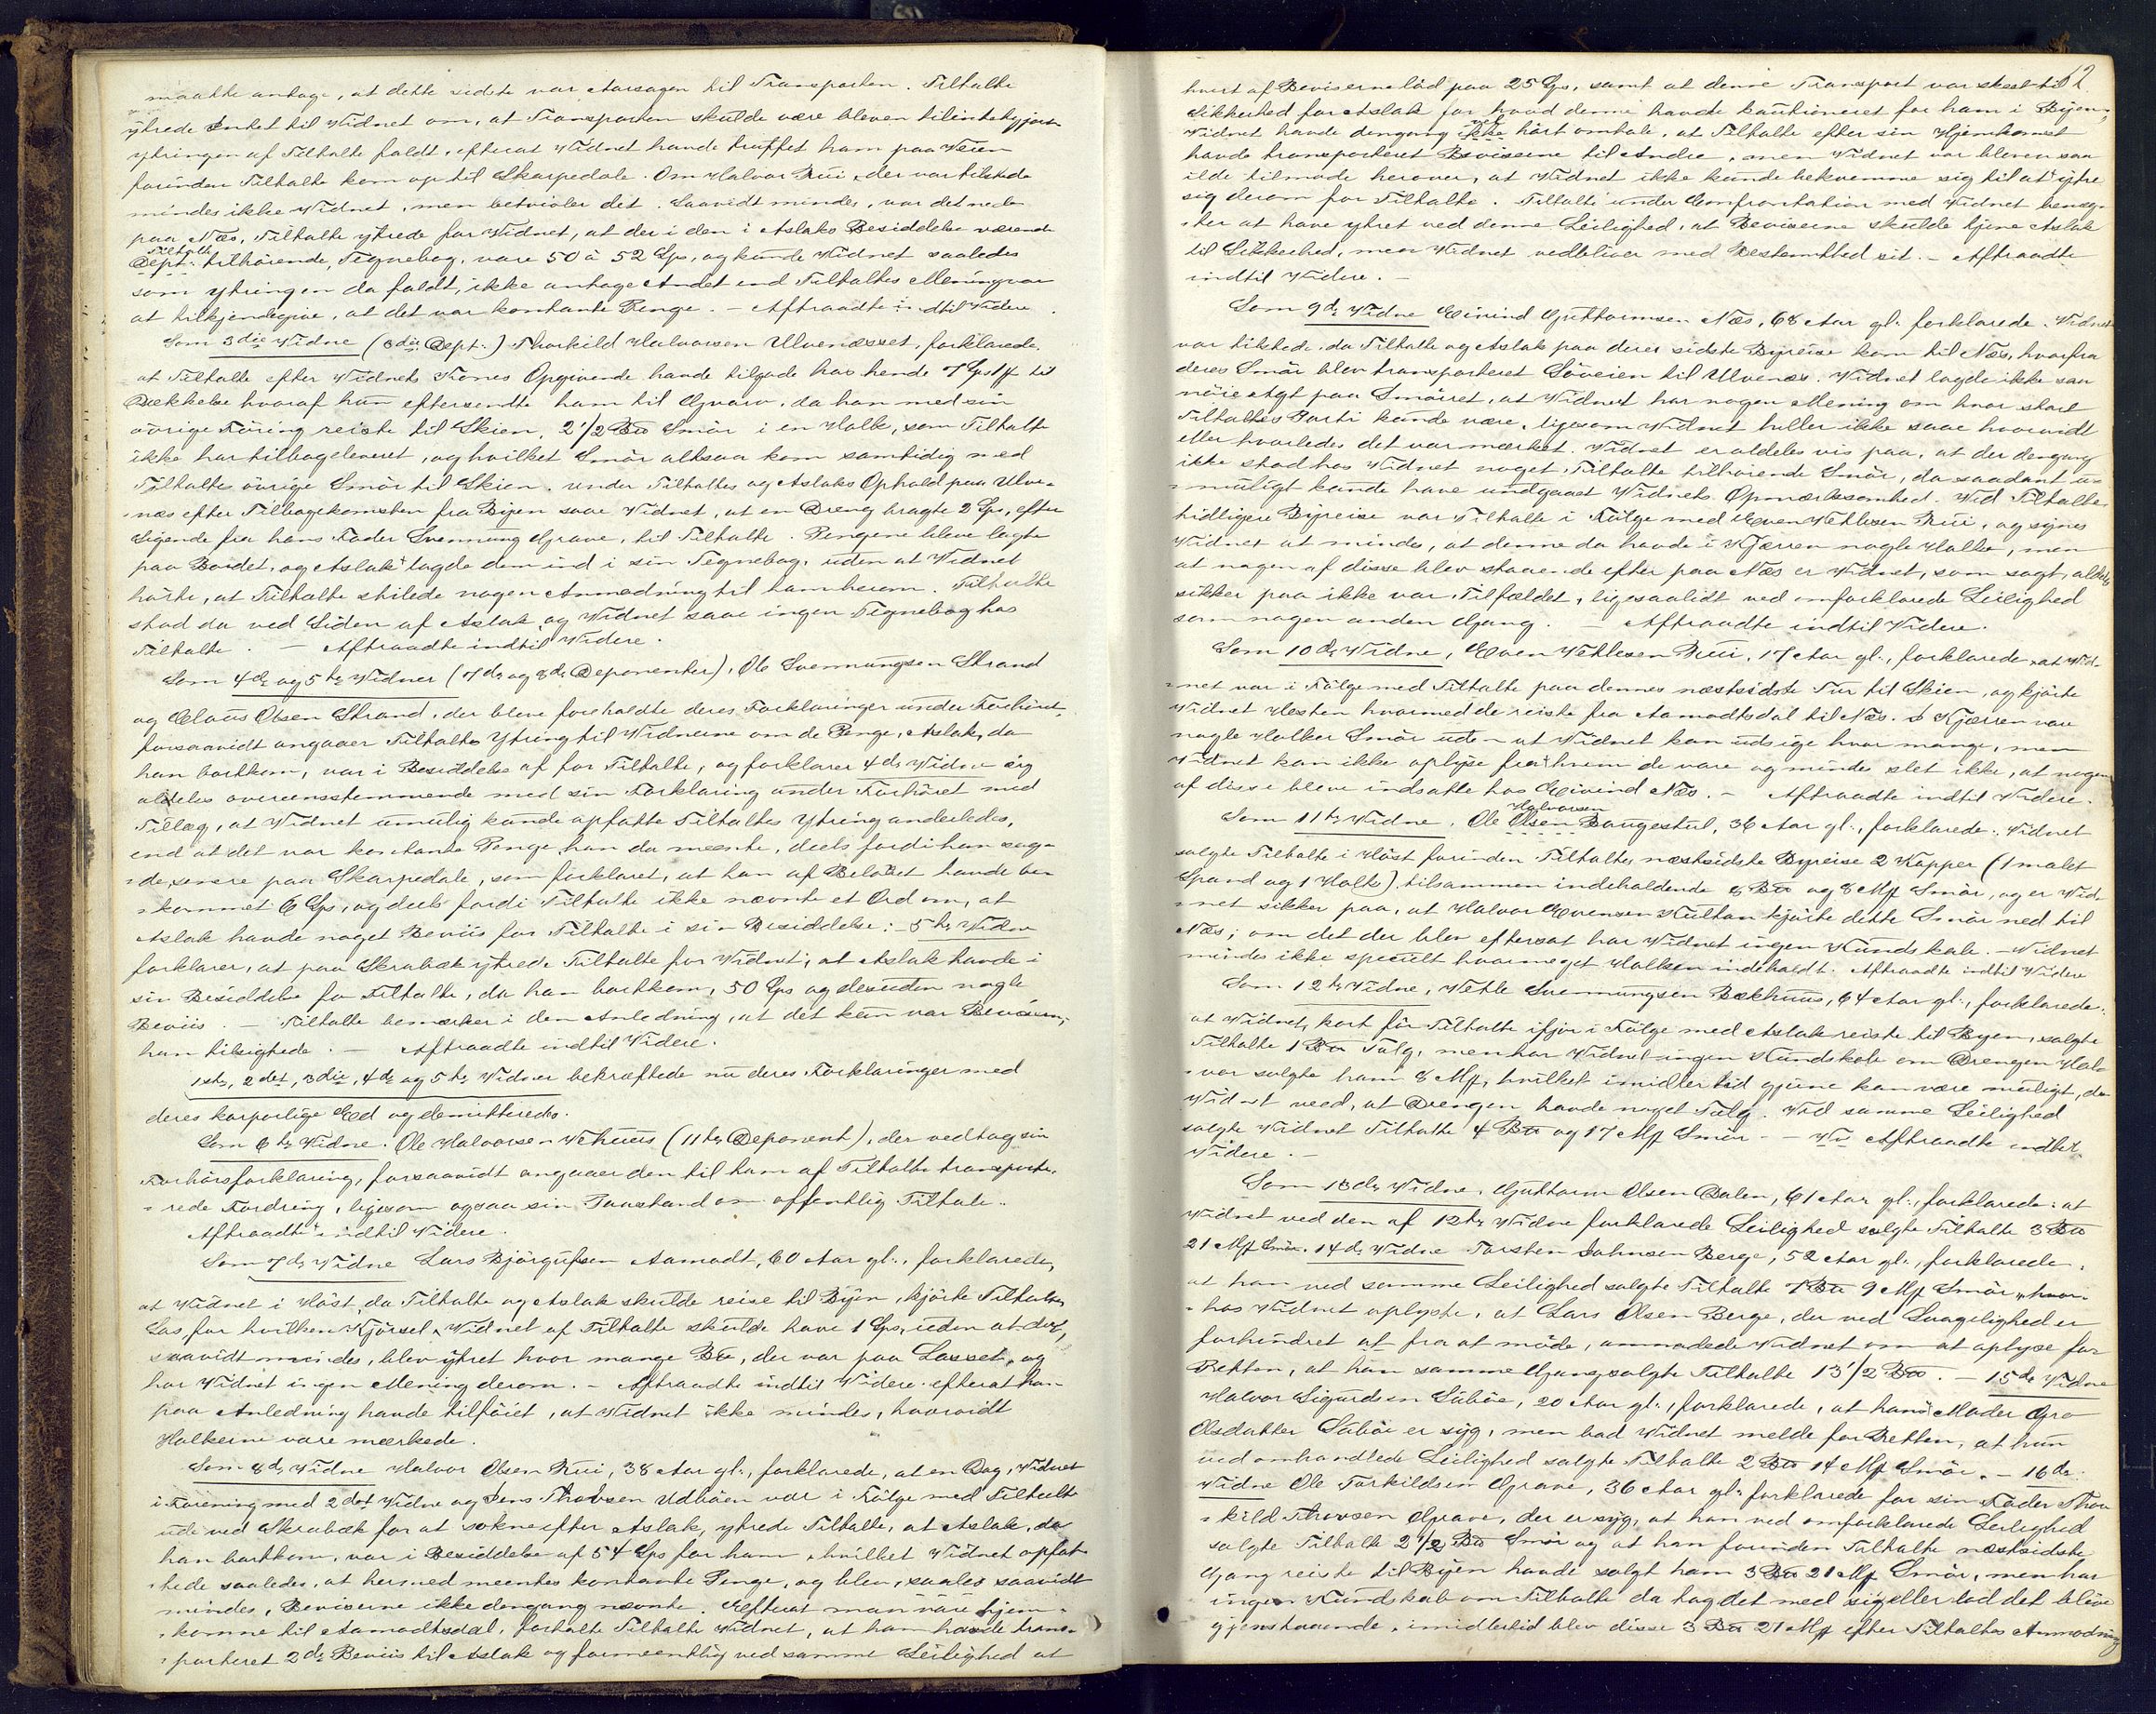 maatte antage, at dette sidste var Aarsagen til Transporten. Tiltalte
ytrede Intet til Vidnet om, at Transporten skulde være bleven tilintetgjort
ytringen af Tiltalte faldt, efterat Vidnet havde truffet ham paa Veien
forinden Tiltalte kom op til Skarpedale. Om Halvor Rui, der var tilstede
mindes ikke Vidnet, men betvivler det. Saavidt mindes, var det nede
paa Næs, Tiltalte ytrede for Vidnet, at der i den i Aslaks Besiddelse værende
Tiltalte
Dept: tilhörende, Tegnebog, vare 50 à 52 Sps, og kunde Vidnet saaledes
som ytringen da faldt, ikke antage Andet end Tiltaltes Mening var
at tilkjendegive, at det var kontante Penge. – Aftraadte indtil Videre.
Som 3die Vidne (6die Dept:) Thorkild Halvorsen Ulvenæsset, forklarede
at Tiltalte efter Vidnets Kones Opgivende havde tilgode hos hende 7 Sps til
Dækkelse hvoraf hun eftersendte ham til Gvarv, da han med sin
övrige Föring reiste til Skien, 2 1/2 Bʉ Smör i en Halk, som Tiltalte
ikke har tilbageleveret, og hvilket Smör altsaa kom samtidig med
Tiltaltes övrige Smör til Skien. under Tiltaltes og Aslaks Ophold paa Ulve-
næs efter Tilbagekomsten fra Byen saae Vidnet, at en Dreng bragte 2 Sps, efter
Sigende fra hans Fader Svennung Grave, til Tiltalte. Pengene bleve lagte
paa Bordet, og Aslak tagde dem ind i sin Tegnebog, uden at Vidnet
hörte, at Tiltalte stilede nogen Anmodning til ham herom. Tiltalte
stod da ved Siden af Aslak, og Vidnet saae ingen Tegnebog hos
Tiltalte. – Aftraadte indtil Videre.
Som 4de og 5te Vidner (7de og 8de Deponenter), Ole Svennungsen Strand
og Claus Olsen Strand, der bleve foreholdte deres Forklaringer under Forhöret,
forsaavidt angaaer Tiltaltes Ytring til Vidnerne om de Penge, Aslak, da
han bortkom, var i Besiddelse af for Tiltalte, og forklarer 4de Vidne sig
aldeles overensstemmende med sin Forklaring under Forhöret med
Tillæg, at Vidnet umulig kunde opfatte Tiltaltes Ytring anderledes,
end at det var kontante Penge, han da meente, deels fordi han sag-
de, senere paa Skarpedale, som forklaret, at han af Belöbet havde be-
kommet 6 Sps, og deels fordi Tiltalte ikke nævnte et Ord om, at
Aslak havde noget Beviis for Tiltalte i sin Besiddelse; 5te Vidne
forklarer, at paa Skrabæk ytrede Tiltalte for Vidnet, at Aslak havde i
sin Besiddelse for Tiltalte, da han bortkom, 50 Sps og desuden nogle
Beviis. – Tiltalte bemærker i den Anledning, at det kun var Bevisern,
han tilsigtede. – Aftraadte indtil Videre.
1ste, 2det, 3die, 4de og 5te Vidner bekræftede nu deres Forklaringer med
deres korporlige Eed og demitteredes.
Som 6te Vidne. Ole Halvorsen Vehuus (11te Deponent), der vedtog sin
Forhörsforklaring, forsaavidt angaaer den til ham af Tiltalte transporte-
rede Fordring, ligesom ogsaa sin Paastand om offentlig Tiltale.
Aftraadte indtil Videre.
Som 7de Vidne Lars Björgufsen Aamodt, 60 Aar gl., forklarede,
at Vidnet i Höst, da Tiltalte og Aslak skulde reise til Byen, kjörte Tiltaltes
Las, for hvilken Kjörsel, Vidnet af Tiltalte skulde have 1 Sps, uden at det,
saavidt mindes, blev ytret hvor mange Bʉ, der var paa Lasset, og
har Vidnet ingen Mening derom. – Aftraadte indtil Videre efterat han
paa Anledning havde tilföiet, at Vidnet ikke mindes, hvorvidt
Halkerne vare mærkede.
Som 8de Vidne Halvor Olsen Rui, 38 Aar gl., forklarede, at en Dag, Vidnet
i Forening med 2det Vidne og Jens Thorsen Udböen var i Fölge med Tiltalte
ude ved Skrabæk for at sokne efter Aslak, ytrede Tiltalte, at Aslak, da
han bortkom, var i Besiddelse af 54 Sps for ham, hvilket Vidnet opfat-
tede saaledes, at hermed meentes kontante Penge, og blev, saavidt
mindes, Beviserne ikke dengang nævnte. Efterat man var hjem-
komne til Aamodtsdal, fortalte Tiltalte Vidnet, at han havde trans-
porteret 2de Beviis til Aslak og formeentlig ved samme Leilighed at
12
hvert af Beviserne löd paa 25 Sps, samt at denne Transport var skeet til
Sikkerhed for Aslak for hvad denne havde kautioneret for ham i Byen;
Vidnet havde dengang ikke hört omtale, at Tiltalte efter sin Hjemkomst
havde transporteret Beviserne til Andre, men Vidnet var bleven saa
ilde tilmode herover, at Vidnet ikke kunde bekvemme sig til at ytre
sig derom for Tiltalte. Tiltalte under Confrontation med Vidnet benæg-
ter at have ytret ved denne Leilighed, at Beviserne skulde tjene Aslak
til Sikkerhed, men Vidnet vedbliver med Bestemthed sit. – Aftraadte
indtil Videre. –
Som 9de Vidne Eivind Guttormsen Næs, 68 Aar gl. forklarede. Vidnet
var tilstede, da Tiltalte og Aslak paa deres sidste Byreise kom til Næs, hvorfra
deres Smör blev transporteret Söveien til Ulvenæs. Vidnet lagde ikke saa
nöie Agt paa Smöret, at Vidnet har nogen Mening om hvor stort
Tiltaltes Parti kunde være, ligesom Vidnet heller ikke saae hvorvidt
eller hvorledes det var mærket. Vidnet er aldeles vis paa, at der dengang
ikke stod hos Vidnet noget, Tiltalte tilhörende Smör, da saadant u-
muligt kunde have undgaaet Vidnets Opmærksomhed. Ved Tiltaltes
tidligere Byreise var Tiltalte i Fölge med Even Vetlesen Rui, og synes
Vidnet at mindes, at denne da havde i Kjærren nogle Halke, men
at nogen af disse blev staaende efter paa Næs er Vidnet, som sagt, aldeles
sikker paa ikke var Tilfældet, ligesaalidt ved omforklarede Leilighed
som nogen anden Gang. – Aftraadte indtil Videre.
Som 10de Vidne, Even Vetlesen Rui, 17 Aar gl., forklarede, at Vid-
net var i Fölge med Tiltalte paa dennes næstsidste Tur til Skien, og kjörte
Vidnet Hesten hvormed de reiste fra Aamodtsdal til Næs. I Kjærren vare
nogle Halker Smör uden at Vidnet kan udsige hvor mange, men
Vidnet kan ikke oplyse fra hvem de vare og mindes slet ikke, at nogen
af disse bleve indsatte hos Eivind Næs. – Aftraadte indtil Videre.
Halvorsen
Som 11te Vidne. Ole Olsen Baugestul, 36 Aar gl., forklarede: Vidnet
solgte Tiltalte i Höst forinden Tiltaltes næstsidste Byreise 2 Kopper (1 malet
Spand og 1 Halk), tilsammen indeholdende 8 Bʉ og 8 Mk Smör, og er Vid-
net sikker paa, at Halvor Evensen Kultan kjörte dette Smör ned til
Næs; om det der blev eftersat har Vidnet ingen Kundskab. – Vidnet
mindes ikke specielt hvormeget Halken indeholdt. Aftraadte indtil Videre
Som 12te Vidne, Vetle Svennungsen Bækhuus, 64 Aar gl., forklarede:
at Vidnet, kort för Tiltalte ifjor i Fölge med Aslak reiste til Byen, solgte
Tiltalte 1 Bʉ Talg, men har Vidnet ingen Kundskab om Drengen Hal-
vor solgte ham 8 Mk, hvilket imidlertid gjerne kan være muligt, da
Vidnet veed, at Drengen havde noget Talg. Ved samme Leilighed
solgte Vidnet Tiltalte 4 Bʉ og 17 Mk Smör. – Aftraadte indtil
Videre. –
Som 13de Vidne. Guttorm Olsen Dalen, 61 Aar gl., forklarede: at
Vidnet ved den af 12te Vidne forklarede Leilighed solgte Tiltalte 3 Bʉ
21 Mk Smör. 14de Vidne Torsten Johnsen Berge, 52 Aar gl., forklarede,
at han ved samme Leilighed solgte Tiltalte 7 Bʉ 9 Mk Smör, hvor-
hos Vidnet oplyste, at Lars Olsen Berge, der ved Svagelighed er
forhindret at fra at möde, anmodede Vidnet om at oplyse for
Retten, at han samme Gang solgte Tiltalte 13 1/2 Bʉ. – 15de Vidne
Halvor Sigurdsen Läböe, 20 Aar gl., forklarede, at hans Moder Gro
Olsdatter Läböe er syg, men bad Vidnet melde for Retten, at hun
ved omhandlede Leilighed solgte Tiltalte 2 Bʉ 14 Mk Smör. – 16de
Vidne Ole Torkildsen Grave, 36 Aar gl. forklarede for sin Fader Thor-
kild Thorsen Grave, der er syg, at han ved omforklarede Leilighed
solgte Tiltalte 2 1/2 Bʉ Smör og at han forinden Tiltalte næstsidste
Gang reiste til Byen havde solgt ham 3 Bʉ 21 Mk Smör, men har
ingen Kundskab om Tiltalte da tog det med sig eller lod det blive
gjenstaaende, imidlertid blev disse 3 Bʉ 21 Mk efter Tiltaltes Anmodning